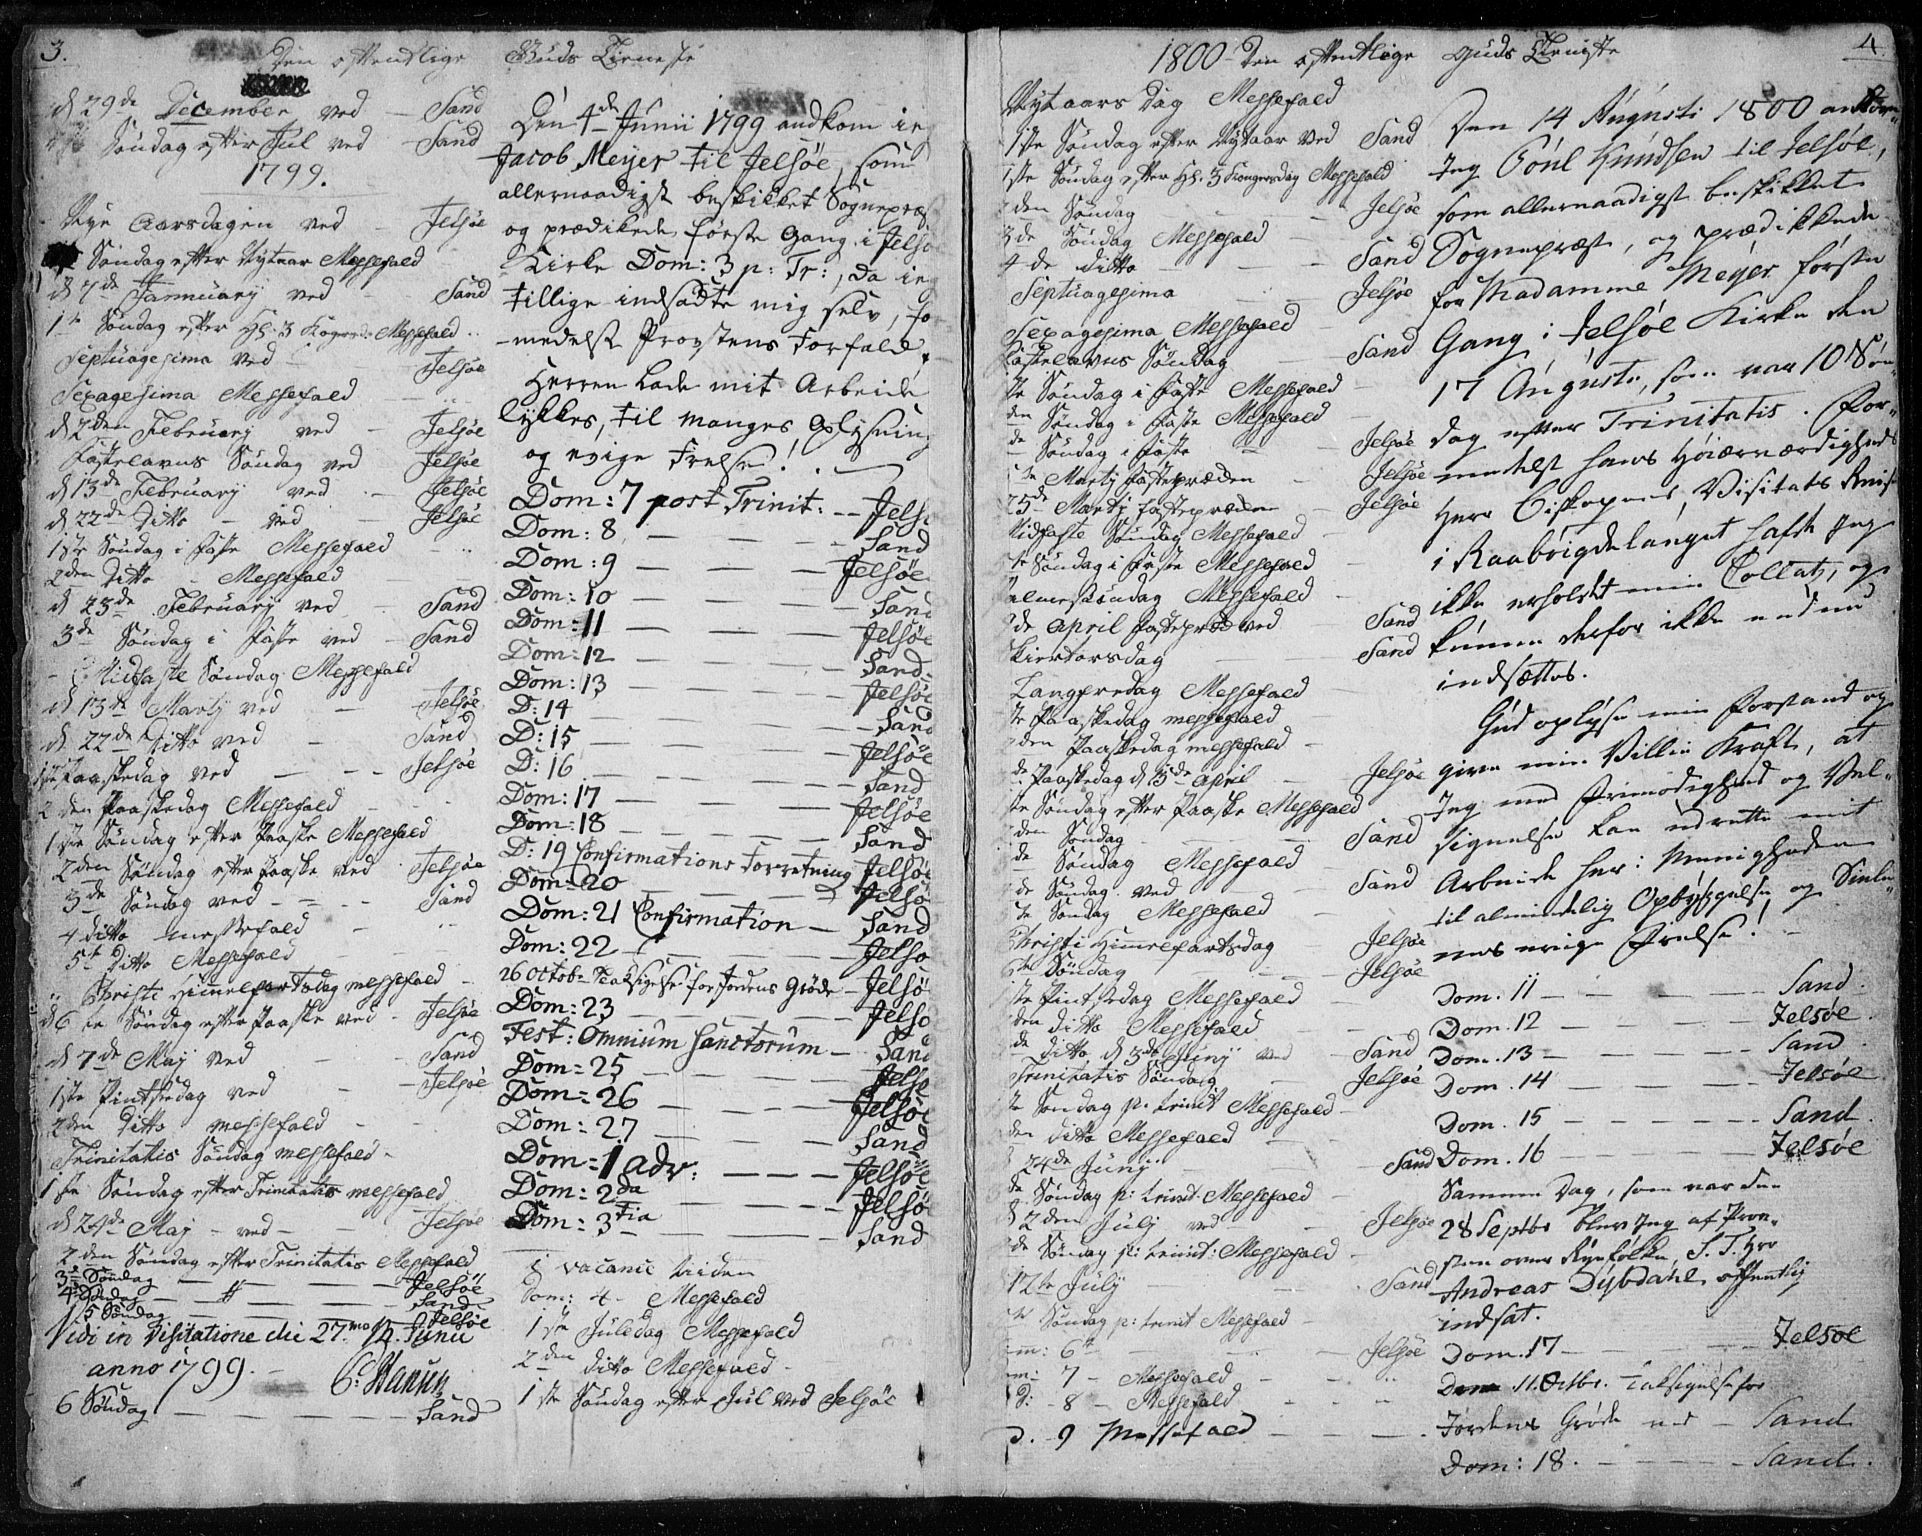 3.
Den offentlige Guds Tieneste
d 29de December ved - Sand
Søndag efter Jul ved - Sand
1799.
Nye Aarsdagen ved - Jelsøe
Søndag efter Nytaar Messefald
d 7de Januarij ved - Sand
1te Søndag efter Hl. 3 Kongersd: Messefald
Septuagesima ved - Jelsøe
Sexagesima Messefald
d 2den Februarij ved - Jelsøe
Fastelavns Søndag ved - Jelsøe
d 13de Februarij ved - Jelsøe
d. 22de Ditto - ved - Jelsøe
1ste Søndag i Faste Messefald
2den Ditto - Messefald
d 23de Februarij ved - Sand
3de Søndag i Faste ved - Sand
Midfaste Søndag Messefald
d 13de Martij ved - Jelsøe
d. 22de Ditto ved - Sand
1ste Paaskedag ved - - - Jelsøe
2den Paaskedag Messefald
1ste Søndag efter Paaske Messefald
2den Søndag efter Paaske ved - Jelsøe
3de Søndag ved - - - Sand
4 ditto messefald
5te Ditto Messefald
Christi Himmelfartsdag messefald
d 6te Søndag efter Paaske ved - Jelsøe
d 7de Maj ved - Sand
1ste Pintsedag ved - Jelsøe
2den Ditto messefald
Trinitatis Søndag messefald -
1ste Søndag efter Trinitatis messefald
d 24de Maj - ved - Jelsøe
2den Søndag efter Trinitatis Messefald
3de Søndag - - - Jelsøe
4de Søndag - - - Sand
5 Søndag - - - Jelsøe
Vidi in Visitatione die 27mo Junii
anno 1799. -
6 Søndag - - - Sand
Den 4de Junii 1799 andkom ieg
Jacob Meyer til Jelsøe, som
allernaadigst beskikket Sognepræst
og prædikede første Gang i Jelsøe
Kirke Dom: 3 p: Tr:, da ieg
tillige indsadte mig selv, for-
-medelst Provstens Forfald.
Herren lade mit Arbeide
lykkes, til manges Oplysning
og evige Frelse!
Dom: 7 post Trinit: - - Jelsøe
Dom: 8 - - - Sand
Dom: 9 - - - Jelsøe
Dom: 10 - - - Sand
Dom: 11 - - - Jelsøe
Dom: 12 - - - Sand
Dom: 13 - - - Jelsøe
D: 14 - - - Sand
D: 15 - - - Jelsøe
D: 16 - - - Sand
Dom: 17 - - - Jelsøe
Dom: 18 - - - Sand
D: 19 Confirmations Forretning Jelsøe
Dom: 20 - - - Jelsøe
Dom: 21 Confirmation - Sand
Dom: 22 - - - Jelsøe
26 Octobr Taksigelse for Jordens Grøde - Jelsøe
Dom: 23 - - - Jelsøe
Fest: Omnium Sanctorum - Sand
Dom: 25 - - - Jelsøe
Dom: 26 - - - Jelsøe
Dom: 27 - - - Sand
Dom: 1 adv: - - - Jelsøe
Dom: 2da - - - Jelsøe
Dom: 3tia - - - Sand
i vacance tiden
Dom: 4 - Messefald
1ste Juledag Messefald
2den ditto Messefald -
1ste Søndag efter Jul ved Jelsøe
4.
1800 - Den offentlige Guds Tieniste
Nytaars Dag Messefald
1ste Søndag efter Nytaar ved Sand
1ste Søndag efter Hl. 3 Kongersdag Messefald
2den Søndag - - Jelsøe
3de Søndag Messefald
4de ditto - - Sand
Septuagesima - - Jelsøe
Sexagesima Messefald
Fastelavns Søndag - Sand
1te Søndag i Faste Messefald
den Søndag i Faste Messefald
de Søndag i Faste - Jelsøe
te Martij fastepræden - Jelsøe
25de Martij fastepræden - Jelsøe
Midfaste Søndag Messefald
te Søndag i Faste Messefald
Palmesøndag Messefald
2de April fastepræd ved - Sand
Skiertorsdag - Sand
Langfredag Messefald
1te Paaskedag messefald
2den Paaskedag messefald
3de Paaskedag d 15de April - Jelsøe
1te Søndag efter Paaske Messefald
den Søndag - Sand
de Søndag Messefald
de Søndag ved - Sand
te Søndag Messefald
Christi Himmelfartsdag - Jelsøe
6te Søndag - Jelsøe
1ste Pintsedag Messefald
den ditto Messefald
de ditto d 3de Junij ved - Sand
Trinitatis Søndag - Jelsøe
1te Søndag p: trinit Messefald
den ditto Messefald
d 24de Junij - Sand
de Søndag p: trinit: Messefald
d 2den Julij ved - Jelsøe
de Søndag p: trinit: Messefald
12te Julij - Sand
te Søndag p: trinit Messefald
m: 6te - Jelsøe
m: 7 - Messefald
D: - 8 - Messefald
D. - 9 Messefald
Den 14 Augusti 1800 ankom
Jeg Poul Knudsen til Jelsøe,
som allernaadigst beskikket
Sognepræst, og prædikkede
for Madamme Meyer første
Gang i Jelsøe Kirke den
17 Augusti, som var 10 Søn-
dag efter Trinitatis. For-
medelst hans Høiærværdigheds
Herr Biskopens Visitats Reise
i Raabøigdelauget hafde Jeg
ikke erholdet min Collats, og
kunne derfor ikke
indsættes.
Gud oplyse min Forstand og
give min Villie Kraft, at
Jeg med Frimodighed og Vel-
signelse kan udrette mit
Arbeide her i Menigheden
til almindelig Opbyggelse og Siele-
nes evige Frelse!
Dom. 11 - - - Sand.
Dom. 12 - - - Jelsøe.
Dom. 13 - - - Sand
Dom. 14 - - - Jelsøe
Dom. 15 - - - Sand
Dom. 16 - - - Jelsøe
Samme Dag, som var den
28 Septbr blev Jeg af Prov-
sten over Ryefølke, S. T. Hrr
Andreas Dybdahl offentlig
indsat.
Dom. 17 - - - Jelsøe
Dom 11. Octbr. Taksigelse for
Jordens Grøde ved - Sand
Dom: 18. - - - Sand.